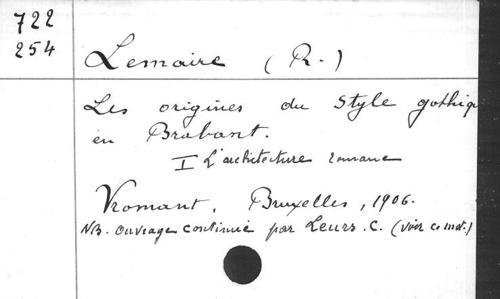 722
254
Lemaire (R.)
Les origines du style gothiq
en Brabant.
I L'architecture romane
Vromant, Bruxelles, 1906.
NB. Ouvrage continué par Leurs. C. (voir ce mot.)